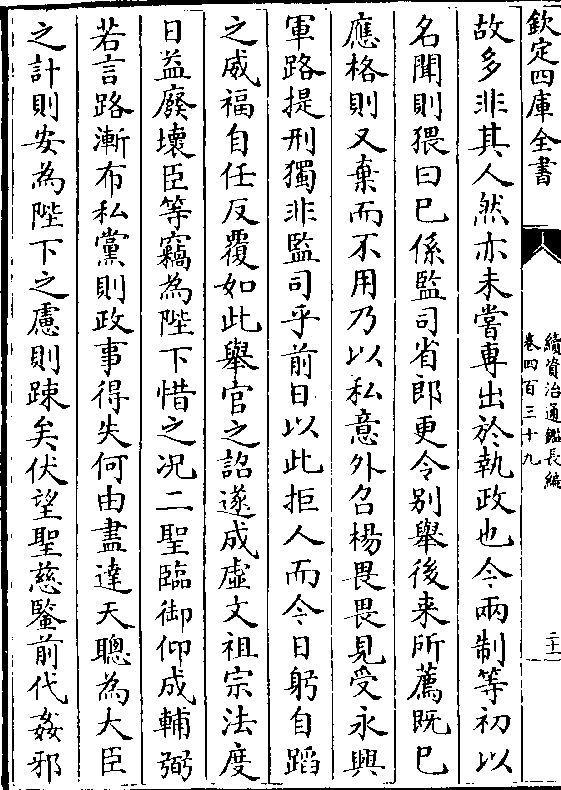 欽定四庫全書
續資治通鑑長編
卷四百三十九
二十一
故多非其人然亦未嘗專出於執政也今兩制等初以
名聞則猥曰已係監司省郎更令别舉後来所薦既已
應格則又棄而不用乃以私意外召楊畏畏見受永興
軍路提刑獨非監司乎前日以此拒人而今日躬自蹈
之威福自任反覆如此舉官之詔遂成虛文祖宗法度
日益廢壞臣等竊為陛下惜之况二聖臨御仰成輔弼
若言路漸布私黨則政事得失何由盡達天聰為大臣
之計則安為陛下之慮則踈矣伏望聖慈鑒前代姦邪